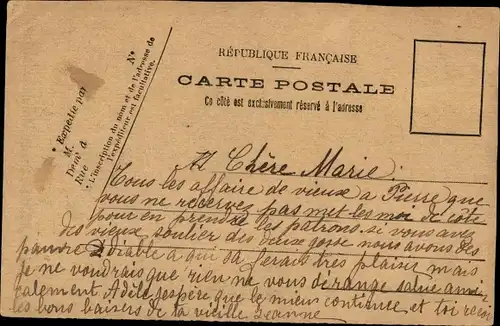 RÉPUBLIQUE FRANÇAISE
CARTE POSTALE
Ce côté est exclusivement réservé à l'adresse
Expédié par
M.
Dem^t à
Rue N°
L'inscription du nom et de l'adresse de
l'expéditeur est facultative.
Chère Marie
Tous les affaire de vieux a Pierre que
vous ne reservez pas met les moi de côté
pour en prendre les patrons. si vous avez
des vieux soulier des deux gosse nous avons des
pauvre diable a qui sa ferait tres plaisir mais
je ne voudrais que rien ne vous dérange salue amicalement
Adèle j'espère que le mieux continue et toi reçoi
les bons baisers de ta vieille Jeanne